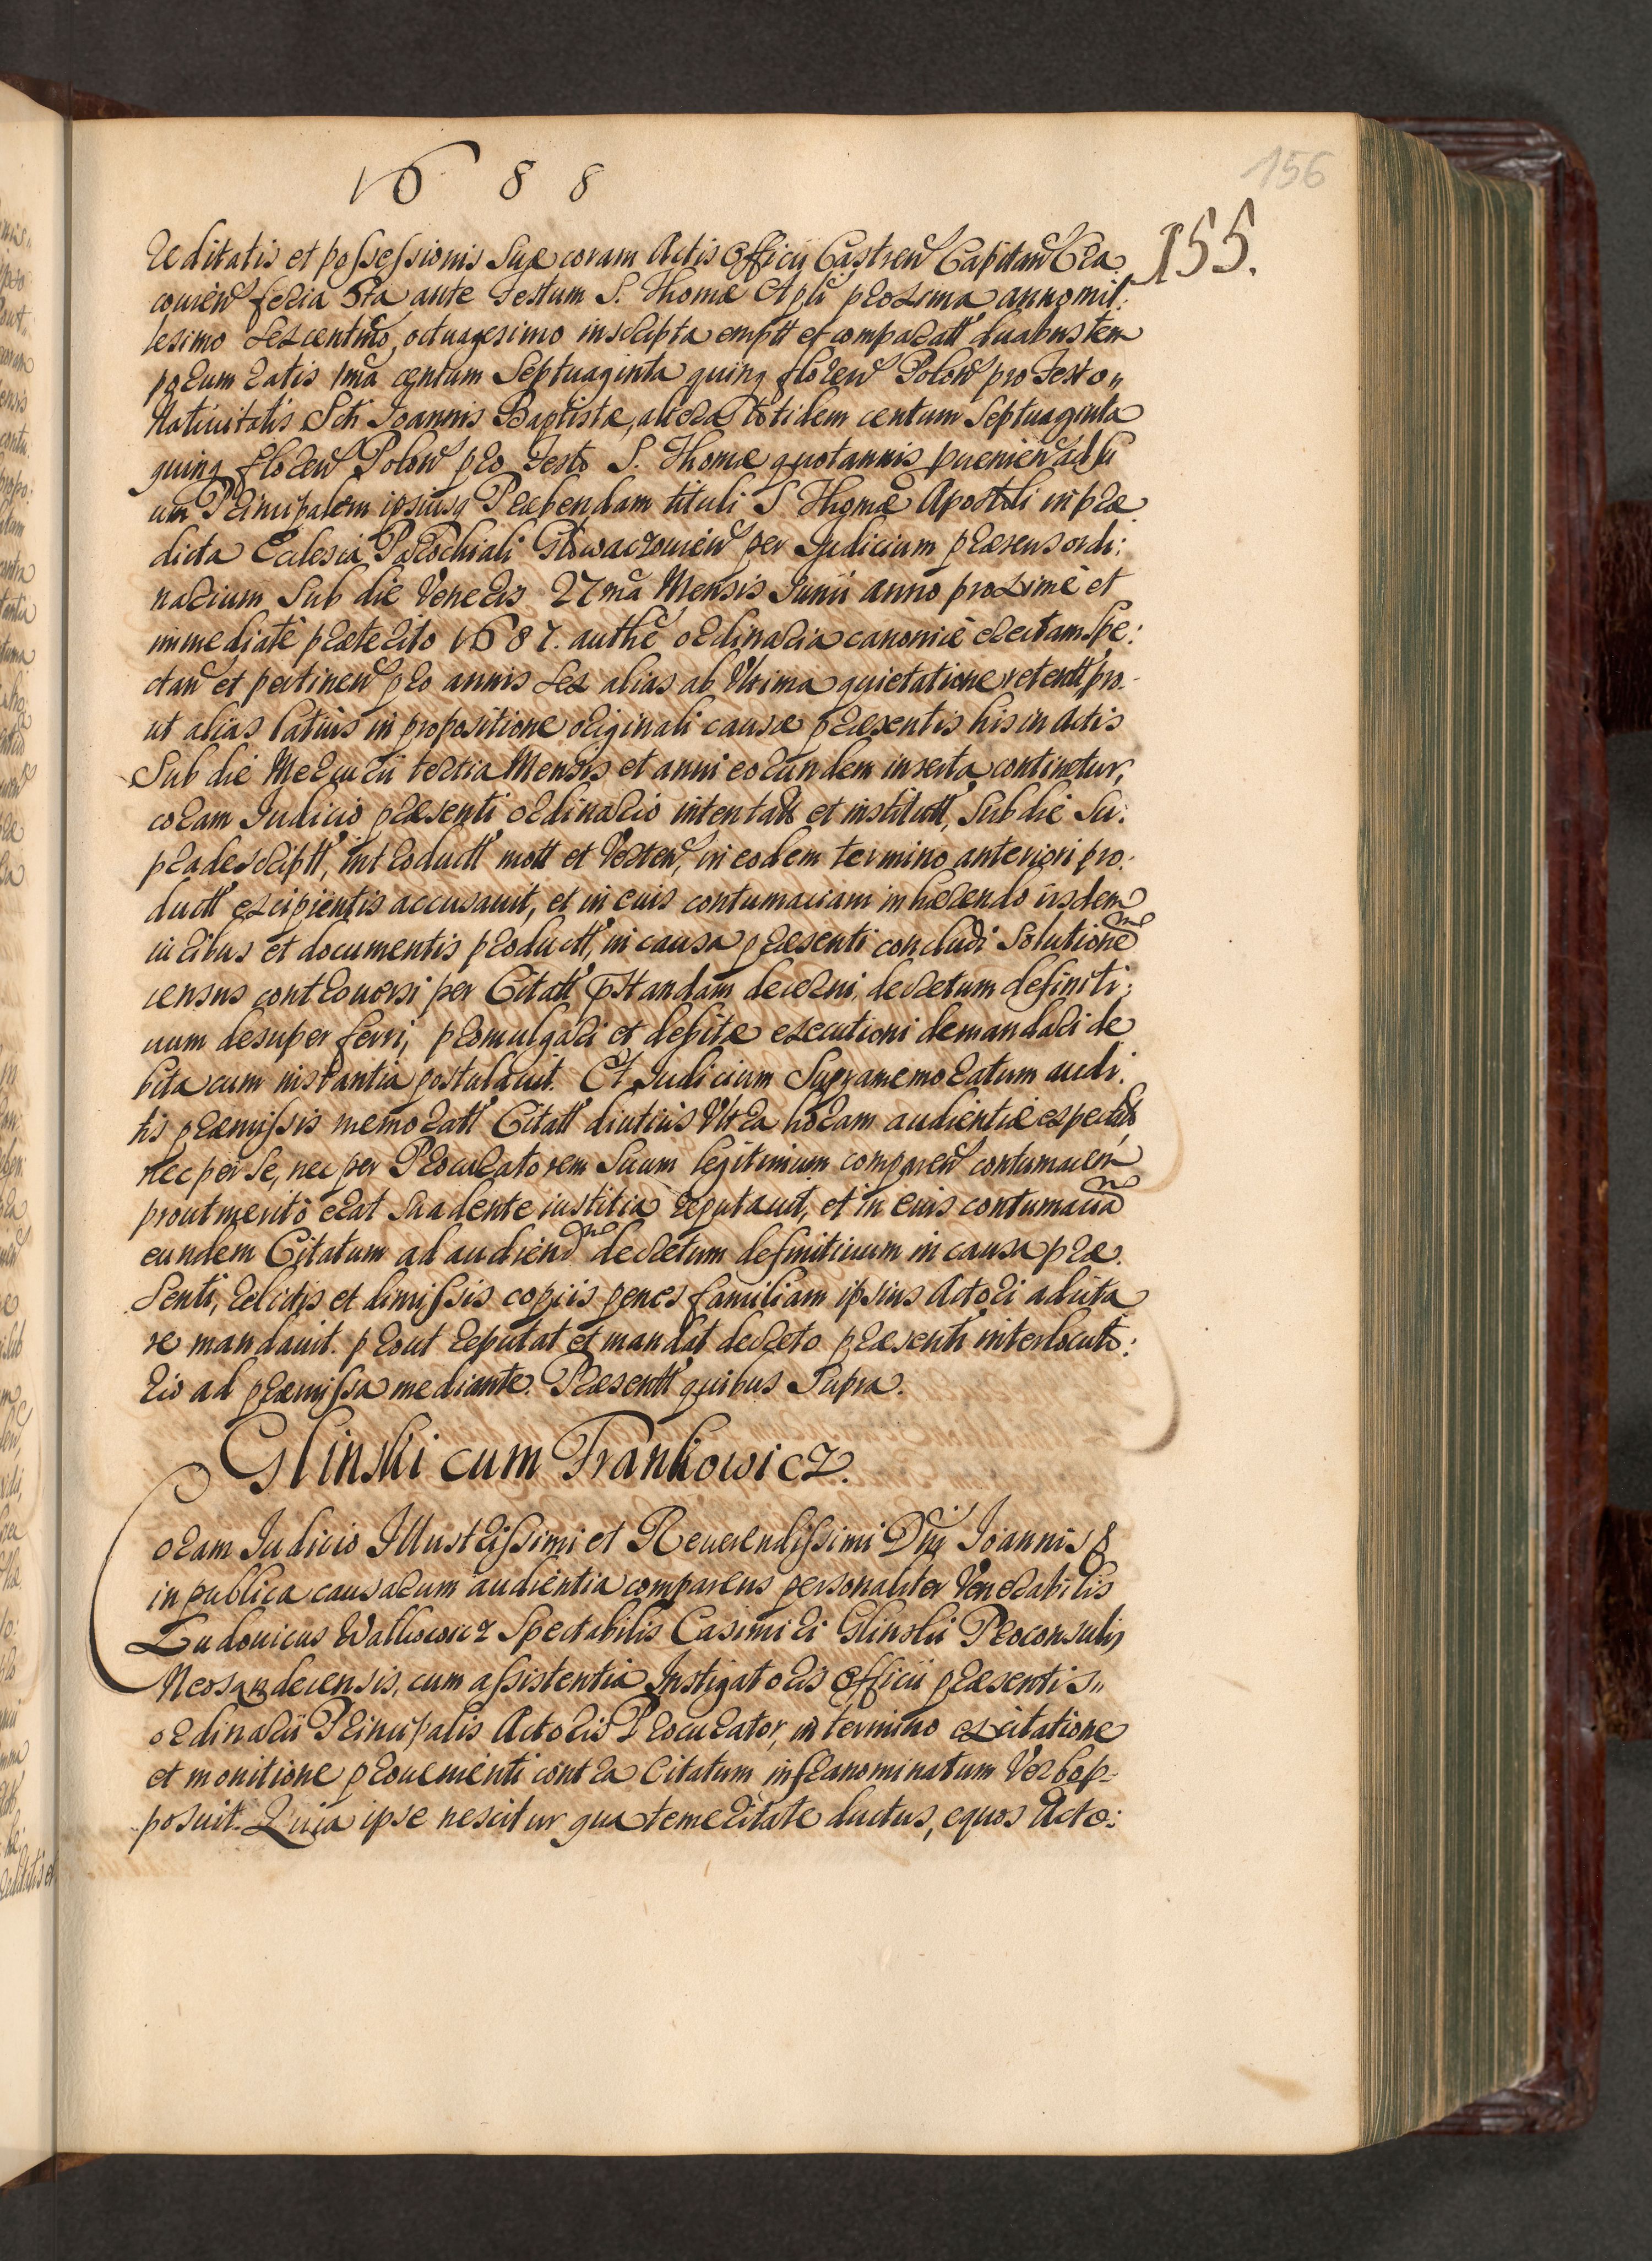 1688
156
155.
reditatis et possessionis Suæ coram Actis Officii Castren Capitan Cra
covien feria 5ta ante Festum S. Thomæ Apli proxima anno mil:
lesimo sexcentmo, octuagesimo inscripta emptt et comparatt duabus tem
porum ratis 1ma centum Septuaginta quinq floren Polon pro Festo
Nativitatis Scti Joannis Baptistæ, altera totidem centum Septuaginta
quinq floren Polon pro Festo S. Thomæ quotannis pvenien ad su
um Principalem ipsiusq Præbendam tituli S Thomæ Apostoli in præ
dicta Ecclesia Parochiali Głowaczovien per Judicium præsens ordi:
narium Sub die Veneris 27ma Mensis Junii anno proximè et
immediatè præterito 1687. authe ordinaria canonicè erectam Spe:
ctan et pertinen pro annis sex alias ab Ultima quietatione retentt pro
ut alias latius in propositione originali causæ præsentis his in Actis
Sub die Mercurii tertia Mensis et anni eorundem inserta continetur,
coram Judicio præsenti ordinario intentatt et institutt, Sub die Su:
pradescriptt, introductt mott et Verten, in eodem termino anteriori pro:
ductt excipientis accusavit, et in eius contumaciam inhærendo iisdem
iuribus et documentis productt, in causa præsenti concludi Solutione
census controversi per Citatt pstandam decerni, decretum definiti:
vum desuper ferri, promulgari et debitæ executioni demandari de
bita cum instantia postulavit. Et Judicium Supramemoratum audi
tis præmissis memoratt Citatt diutius Ultra horam audientiæ expectt
nec per Se, nec per Procuratorem Suum legitimum comparen contumacem
prout meritò erat Suadente iustitia reputavit, et in eius contumacia
eundem Citatum ad audiend decretum definitivum in causa præ
senti, relictis et dimissis copiis penes familiam ipsius Actori adcita
re mandavit. prout reputat et mandat decreto præsenti interlocuto:
rio ad præmissa mediante. Præsentt quibus Supra.
Glinski cum Frankowicz.
Coram Judicio Illustrissimi et Reverendissimi Dni Joannis
in publica causarum audientia comparens personaliter Venerabilis
Ludovicus Spectabilis Casimiri Glinski Proconsulis
Neosandecensis, cum assistentia Instigatoris Officii præsentis
ordinarii Principalis Actoris Procurator, in termino ex citatione
et monitione provenienti contra Citatum infranominatum Verbo p
posuit. Quia ipse nescitur qua temeritate ductus, equos Acto: